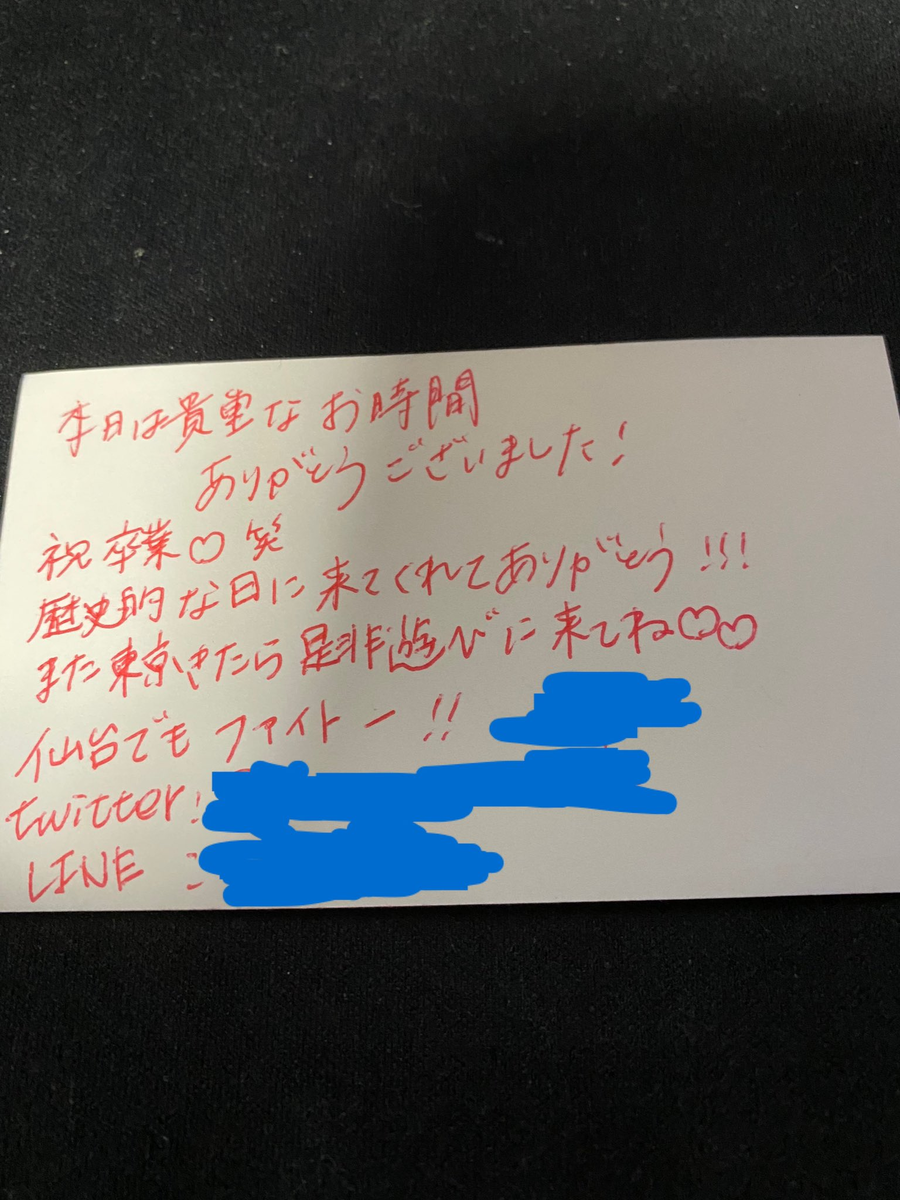 本日は貴重なお時間
ありがとうございました!
祝卒業♡笑
歴史的な日に来てくれてありがとう!!!
また東京きたら是非遊びに来てね♡♡
仙台でもファイトー!!
twitter:
LINE :